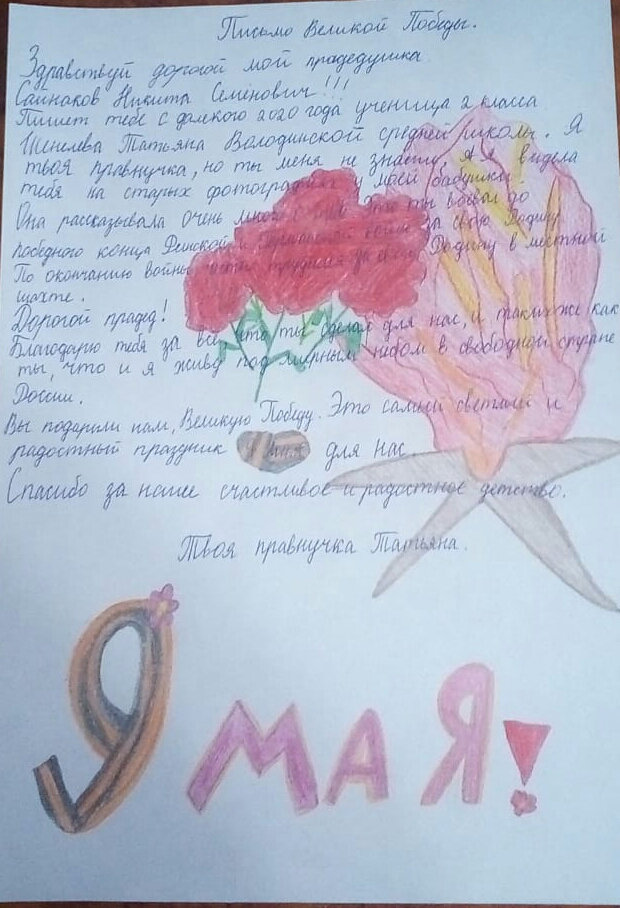 Письмо Великой Победы.
Здравствуй дорогой мой прадедушка
Сайнаков Никита Семёнович!!!
Пишет тебе с далекого 2020 года ученица 2 класса
Татьяна Володинской средней школы. Я
твоя правнучка, но ты меня не знаешь, А я видела
тебя на старых фотографиях у моей бабушки.
Она рассказывала очень много о ты воевал до
победного конца и войне за свою Родину
По окончанию войны трудился за свою Родину в местной
шахте.
Дорогой прадед!
Благодарю тебя за всё, что ты сделал для нас, и таких же как
ты, что и я живу под мирным небом в свободной стране
России.
Вы подарили нам, Великую Победу. Это самый светлый и
радостный праздник 9 мая для нас.
Спасибо за наше счастливое и радостное детство.
Твоя правнучка Татьяна.
9 МАЯ!